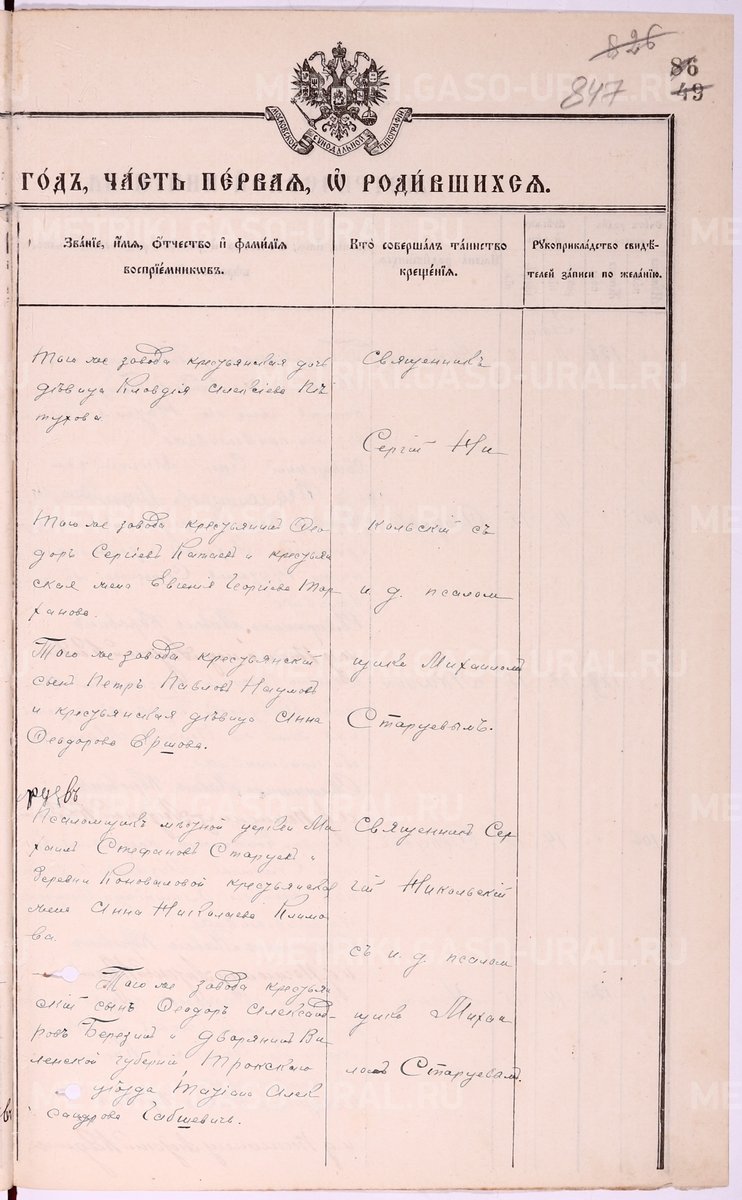 826
847
86
49
МОСКОВСКОЙ СѴНОДАЛЬНОЙ ТИПОГРАФІИ
ГО́ДЪ, ЧА́СТЬ ПЕ́РВАЯ, Ѽ РОДИ́ВШИХСЯ.
Зва́нїе, и҆́мя, ѻ҆́тчество и҆ фами́лїя
воспрїе́мникѡвъ.
Кто̀ соверша́лъ та́инство
креще́нїя.
Рꙋкоприкла́дство свидѣ́-
телей за́писи по жела́нїю.
Того же завода крестьянская дочь
дѣвица Клавдія Алексѣева Пѣ
тухова
Священникъ
Сергій Ни
кольскій съ
и. д. псалом
щика Михаиломъ
Старцевымъ.
Того же завода крестьянинъ Ѳео-
доръ Сергіевъ Катаевъ и крестьян
ская жена Евгенія Георгіева Тар-
ханова
Того же завода крестьянскій
сынъ Петръ Павловъ Наумовъ
и крестьянская дѣвица Анна
Ѳеодорова Ершова.
Псаломщикъ мѣстной церкви Ми
хаилъ Стефановъ Старцевъ и
деревни Коноваловой крестьянская
жена Анна Николаева Климо
ва.
Священникъ Сер
гій Никольскій
съ и. д. псалом
щика Михаи
ломъ Старцевымъ.
Того же завода крестьян
скій сынъ Ѳеодоръ Александ-
ровъ Березинъ и дворянинъ Ви
ленской губерніи, Трокскаго
уѣзда Алек
сандрова Габшевичъ.
METRIKI.GASO-URAL.RU